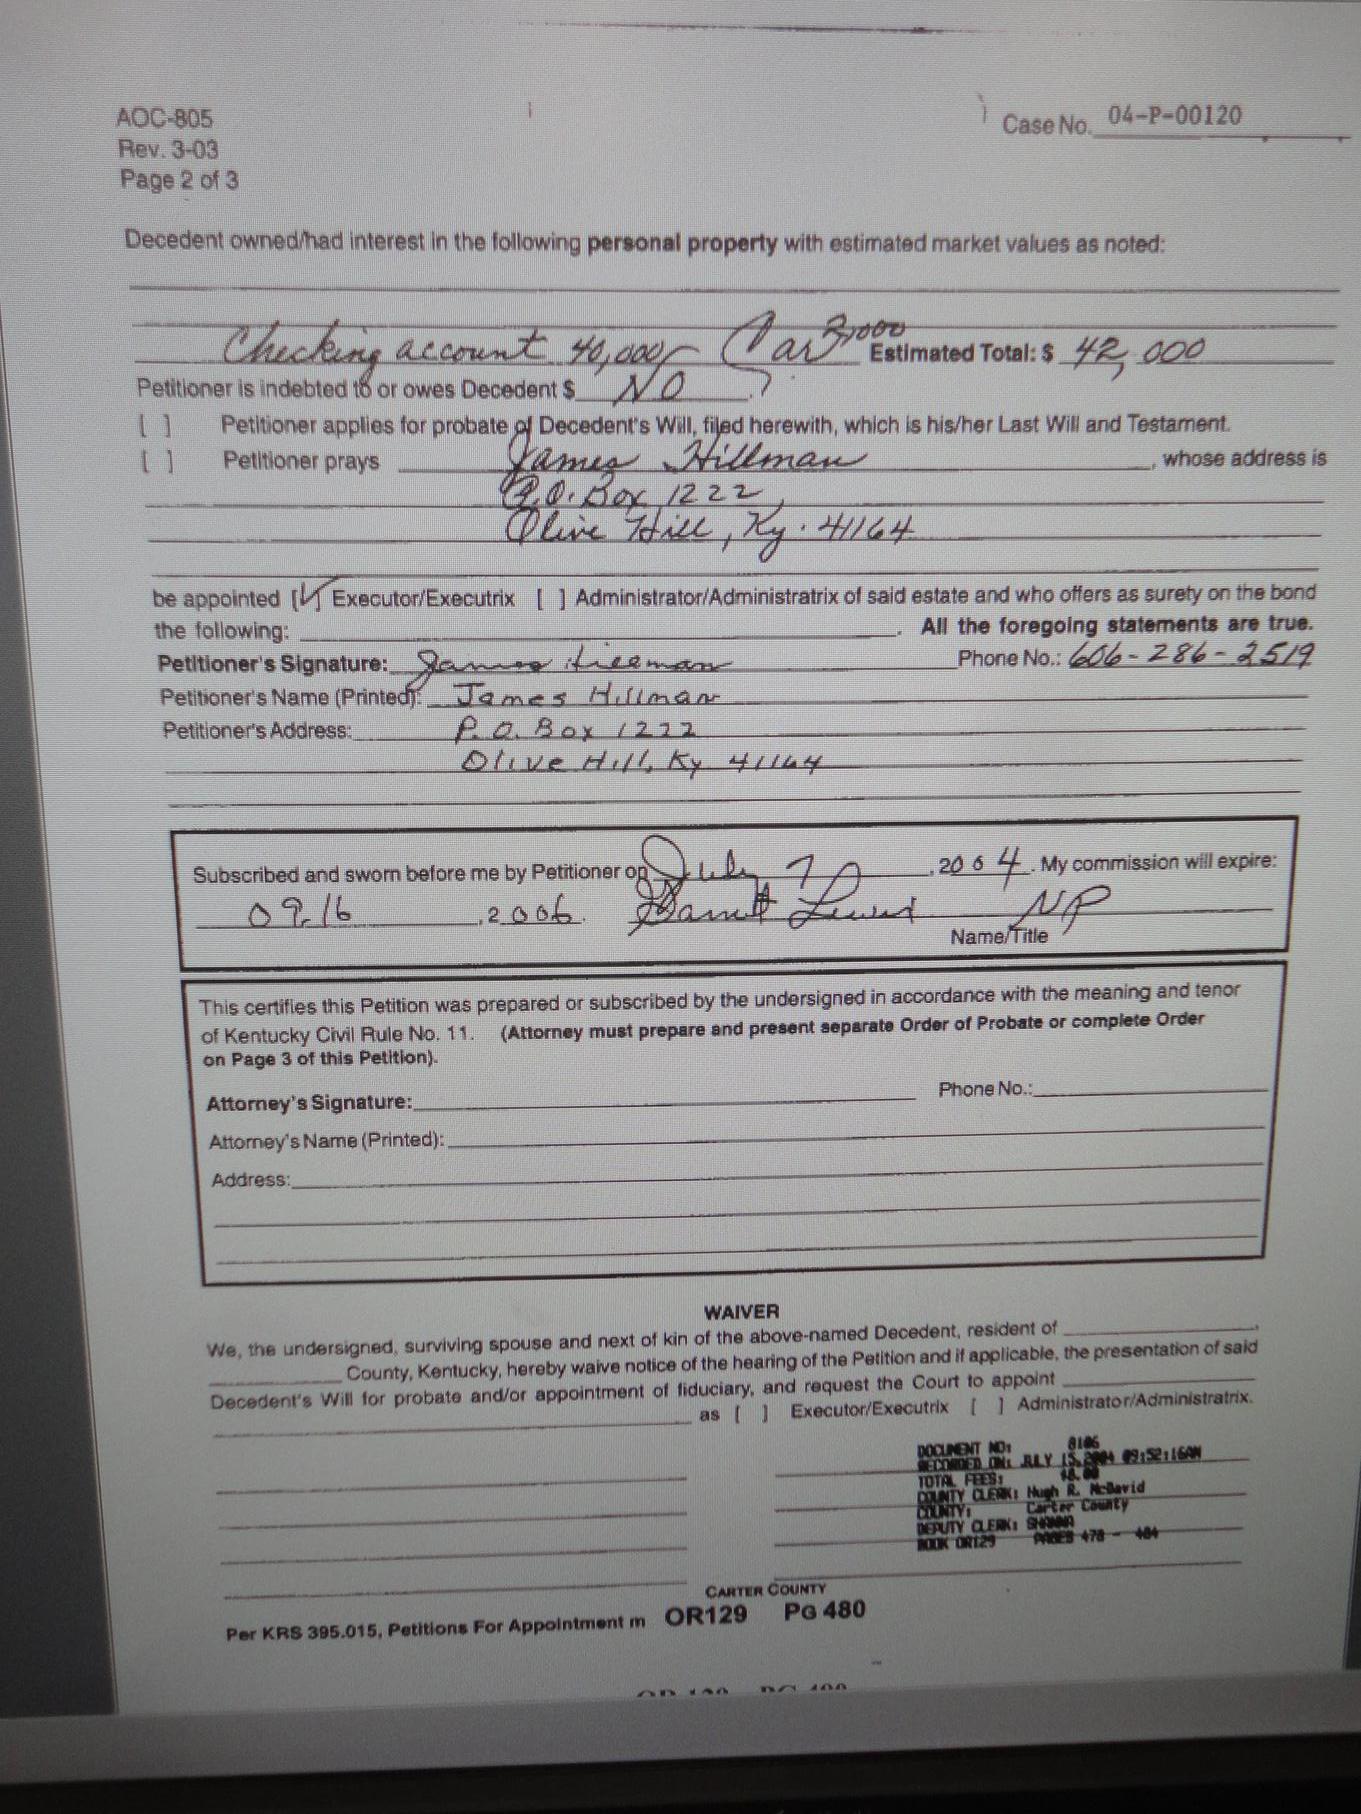 AOC-805
Rev. 3-03
Page 2 of 3
Case No. 04-P-00120
Decedent owned/had interest in the following personal property with estimated market values as noted:
Checking account 40,000 Car 2,000 Estimated Total: $ 42,000
Petitioner is indebted to or owes Decedent $ NO .
[ ] Petitioner applies for probate of Decedent's Will, filed herewith, which is his/her Last Will and Testament.
[ ] Petitioner prays James Hillman , whose address is
P.O. Box 1222
Olive Hill, Ky. 41164
be appointed [✓] Executor/Executrix [ ] Administrator/Administratrix of said estate and who offers as surety on the bond
the following: . All the foregoing statements are true.
Petitioner's Signature: James Hillman Phone No.: 606-286-2519
Petitioner's Name (Printed): James Hillman
Petitioner's Address: P.O. Box 1222
Olive Hill, Ky 41164
Subscribed and sworn before me by Petitioner on July 7 , 2004 . My commission will expire:
09.16 , 2006 . Lewis NP
Name/Title
This certifies this Petition was prepared or subscribed by the undersigned in accordance with the meaning and tenor
of Kentucky Civil Rule No. 11. (Attorney must prepare and present separate Order of Probate or complete Order
on Page 3 of this Petition).
Attorney's Signature: Phone No.:
Attorney's Name (Printed):
Address:
WAIVER
We, the undersigned, surviving spouse and next of kin of the above-named Decedent, resident of
County, Kentucky, hereby waive notice of the hearing of the Petition and if applicable, the presentation of said
Decedent's Will for probate and/or appointment of fiduciary, and request the Court to appoint
as [ ] Executor/Executrix [ ] Administrator/Administratrix.
DOCUMENT NO: 8186
RECORDED ON: JULY 15, 2004 09:52:16AM
TOTAL FEES:
COUNTY CLERK: Hugh R. McDavid
COUNTY: Carter County
DEPUTY CLERK: SHANNA
BOOK OR129 PAGES 478 - 484
CARTER COUNTY
OR129 PG 480
Per KRS 395.015, Petitions For Appointment m